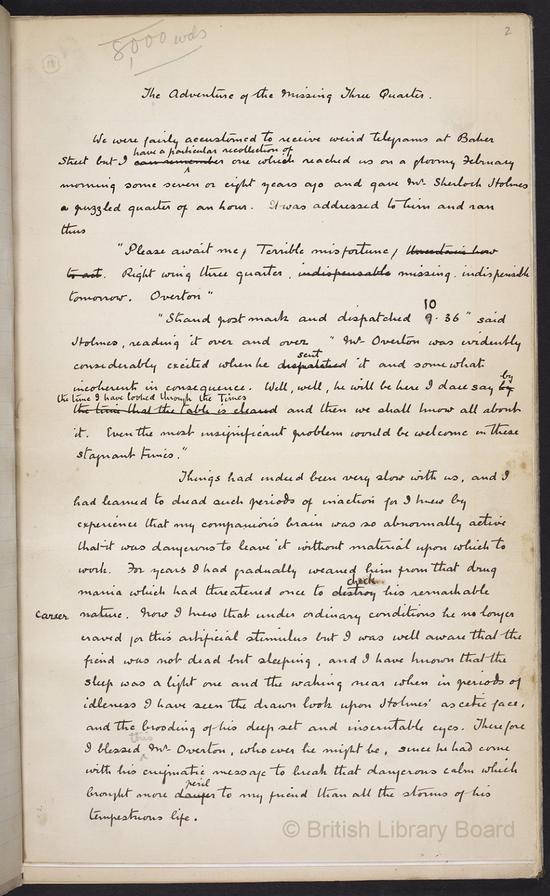 8,000 wds
2
The Adventure of the Missing Three Quarter.
We were fairly accustomed to receive weird telegrams at Baker
have a particular recollection of
Street but I can remember one which reached us on a gloomy February
morning some seven or eight years ago and gave Mr. Sherlock Holmes
a puzzled quarter of an hour. It was addressed to him and ran
thus
"Please await me, Terrible misfortune, Uncertain how
to act. Right wing three quarter, indispensable missing. indispensible
tomorrow. Overton"
10
"Strand post mark and dispatched 9.36" said
Holmes, reading it over and over. "Mr. Overton was evidently
sent
considerably excited when he dispatched it and somewhat
incoherent in consequence. Well, well, he will be here I dare say by
by
the time I have looked through the Times
the time that the table is cleared and then we shall know all about
it. Even the most insignificant problem would be welcome in these
stagnant times."
Things had indeed been very slow with us, and I
had learned to dread such periods of inaction for I knew by
experience that my companion's brain was so abnormally active
that it was dangerous to leave it without material upon which to
work. For years I had gradually weaned him from that drug
check
mania which had threatened once to destroy his remarkable
career
nature. Now I knew that under ordinary conditions he no longer
craved for this artificial stimulus but I was well aware that the
fiend was not dead but sleeping, and I have known that the
sleep was a light one and the waking near when in periods of
idleness I have seen the drawn look upon Holmes' ascetic face,
and the brooding of his deep set and inscrutable eyes. Therefore
this
I blessed Mr. Overton, who ever he might be, since he had come
with his enigmatic message to break that dangerous calm which
peril
brought more danger to my friend than all the storms of his
tempestuous life.
© British Library Board